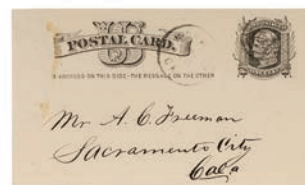 POSTAL CARD.
S ADDRESS ON THIS SIDE - THE MESSAGE ON THE OTHER
Mr A. C. Freeman
Sacramento City
Cala